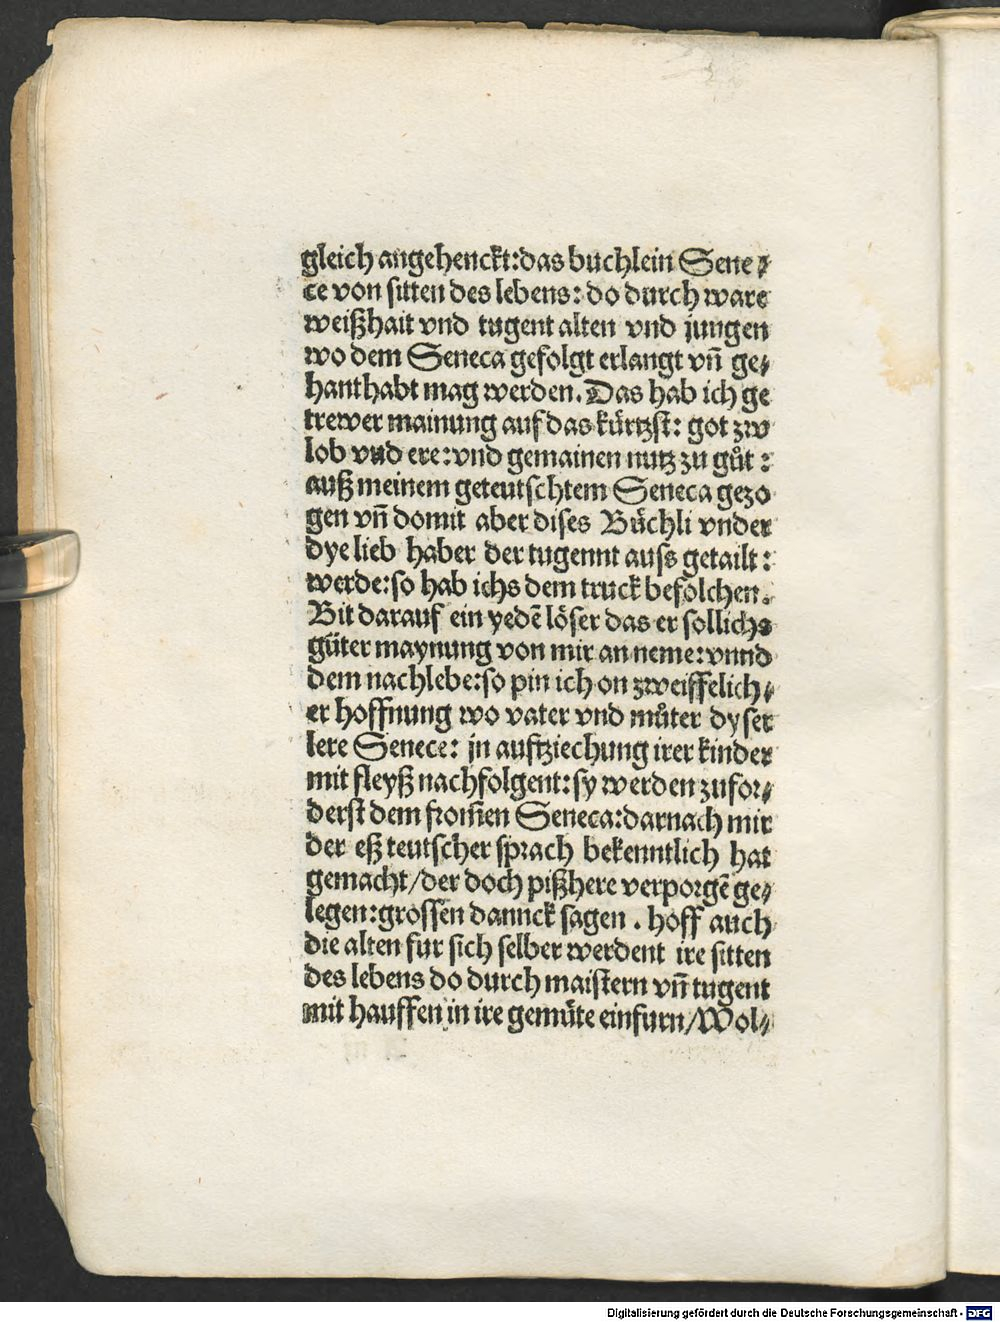 gleich angehenckt:das buchlein Sene⸗
ce von sitten des lebens: do durch ware
weißhait vnd tugent alten vnd jungen
wo dem Seneca gefolgt erlangt vñ ge⸗
hanthabt mag werden. Das hab ich ge
trewer mainung auf das kürtzst: got zw
lob vnd ere:vnd gemainen nutz zu gůt :
auß meinem geteutschtem Seneca gezo
gen vñ domit aber dises Büchli vnder
dye lieb haber der tugennt auss getailt :
werde:so hab ichs dem truck befolchen.
Bit darauf ein yedẽ löser das er sollichs
gůter maynung von mir an neme:vnnd
dem nachlebe:so pin ich on zweiffelich⸗
er hoffnung wo vater vnd můter dyser
lere Senece: jn auftziechung irer kinder
mit fleyß nachfolgent:sy werden zufor⸗
derst dem from̃en Seneca:darnach mir
der eß teutscher sprach bekenntlich hat
gemacht/der doch pißhere verporgẽ ge⸗
legen:grossen dannck sagen . hoff auch
die alten fur sich selber werdent ire sitten
des lebens do durch maistern vñ tugent
mit hauffen in ire gemůte einfurn/Wol⸗
Digitalisierung gefördert durch die Deutsche Forschungsgemeinschaft - DFG